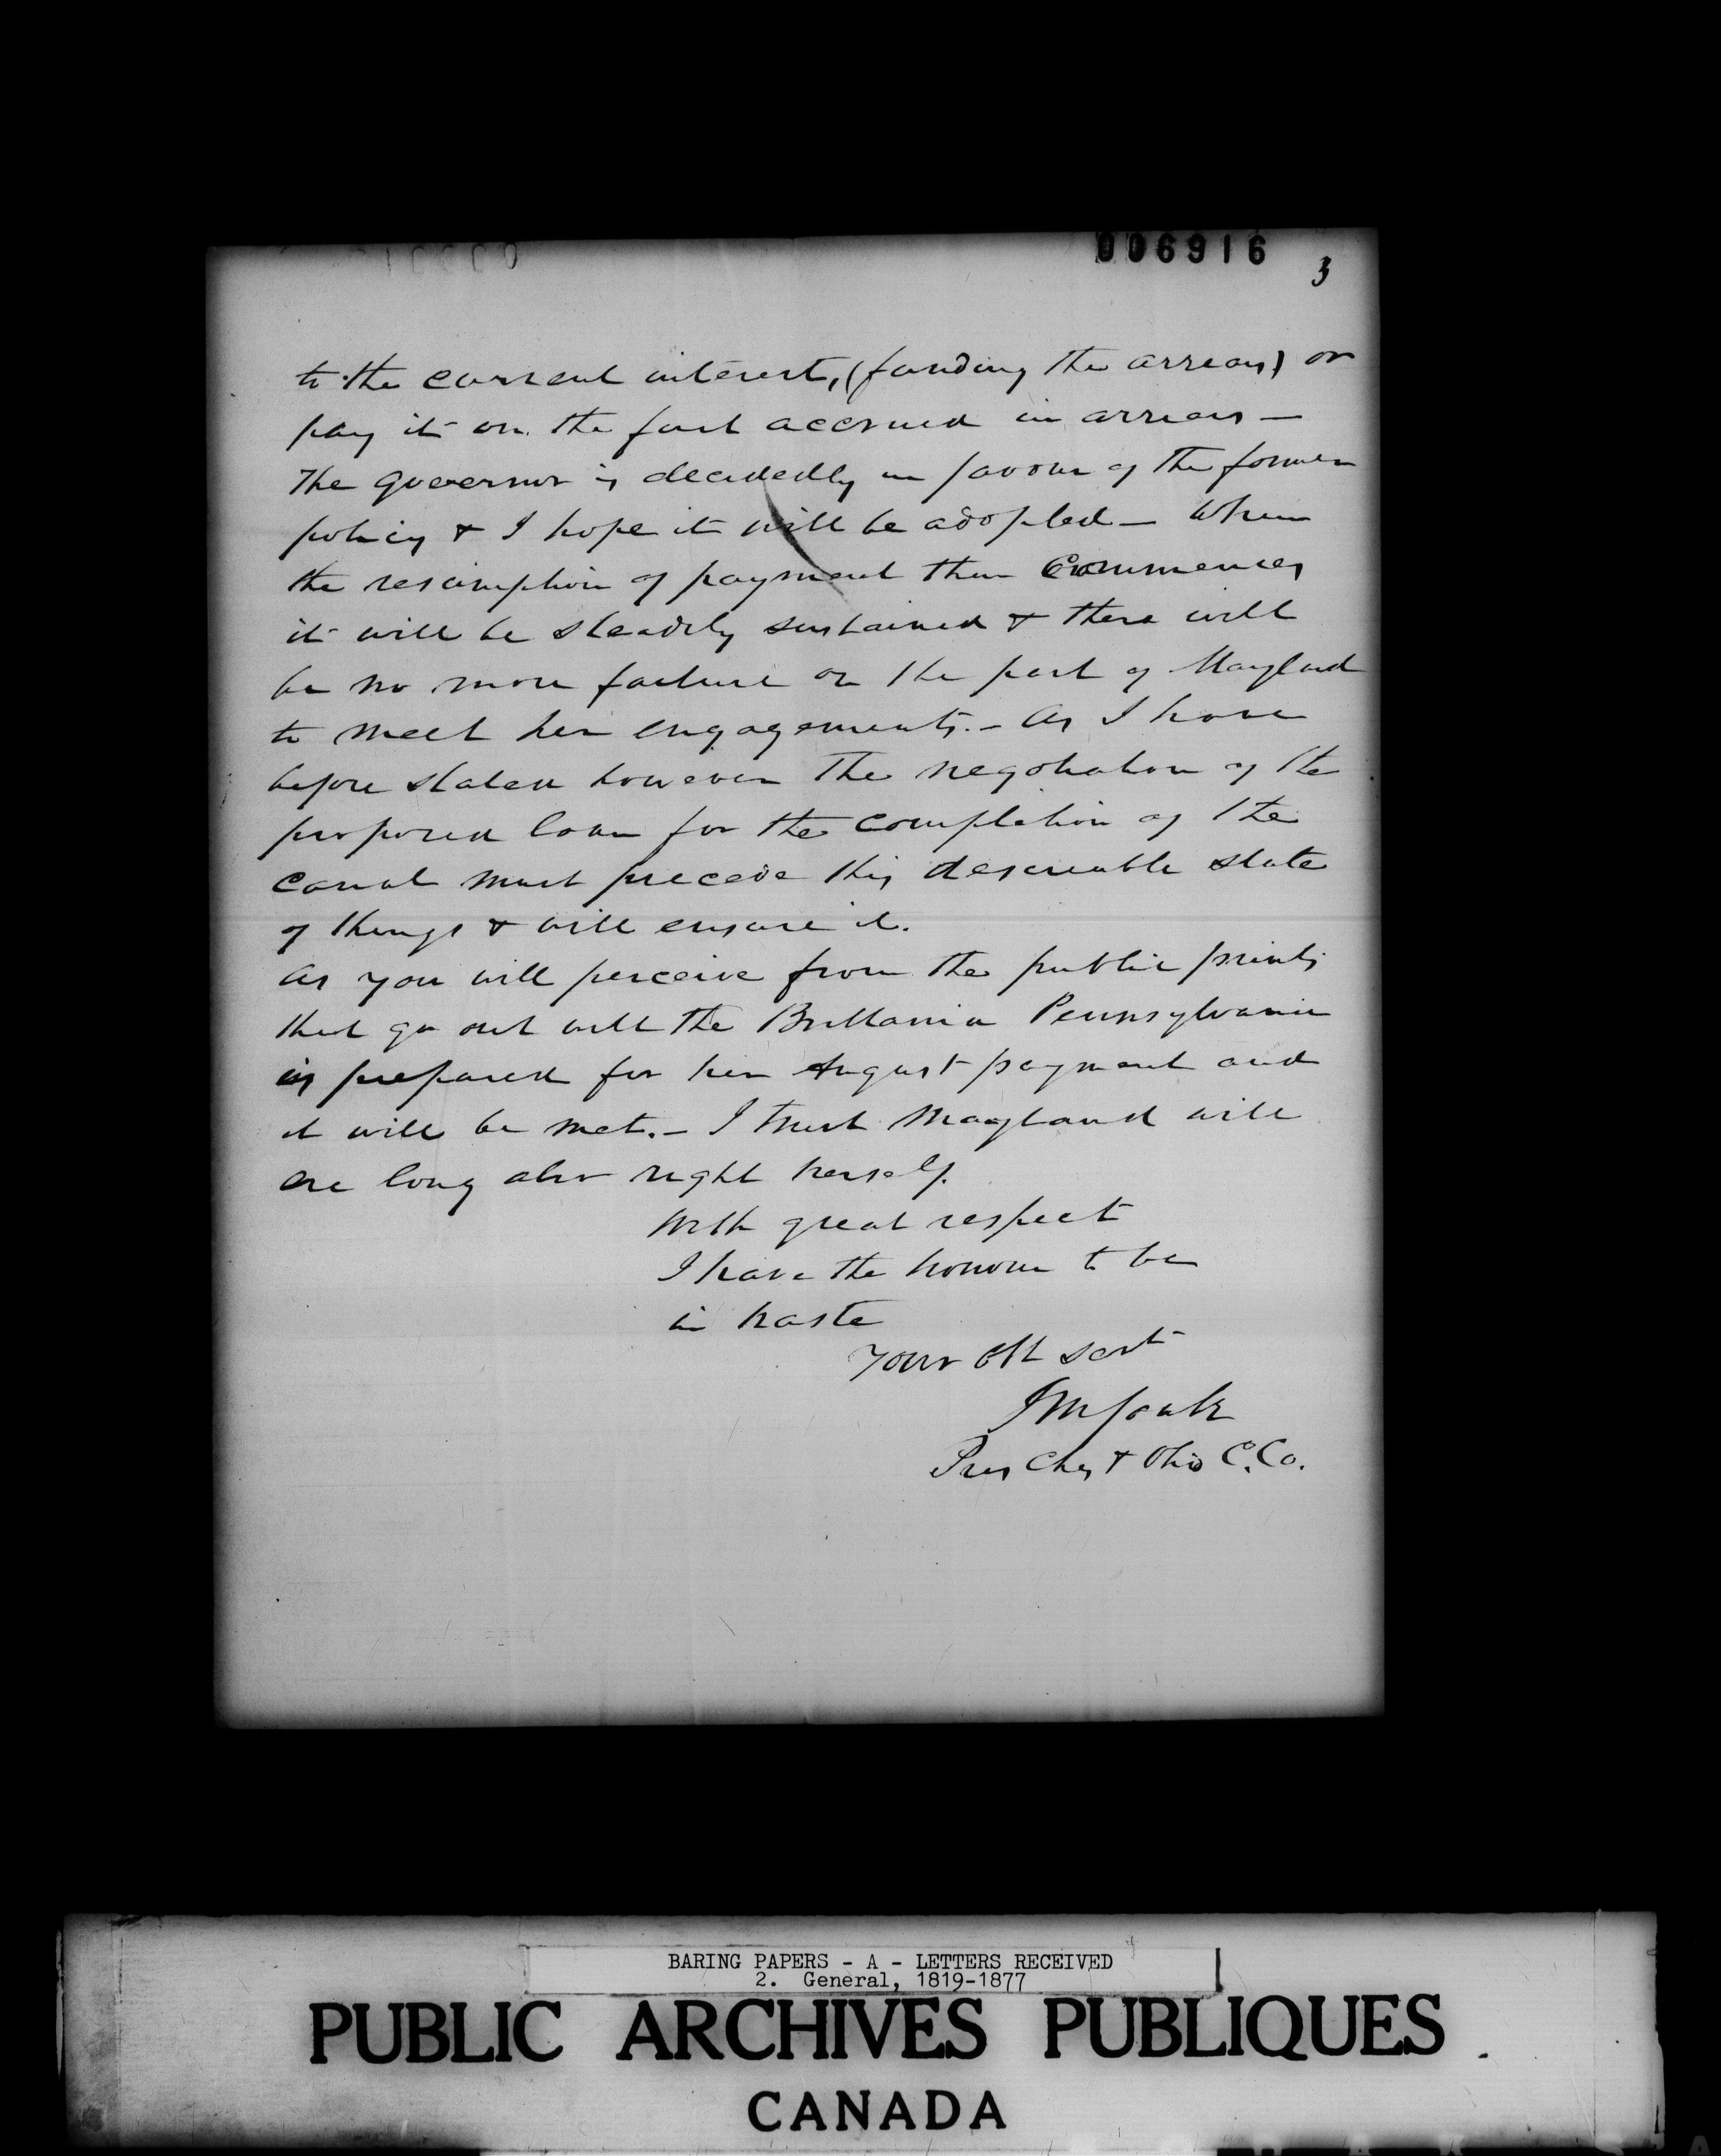 006916
3
to the current interest, (funding the arrears) or
pay it on the first accrued in arrears —
The governor is decidedly in favour of the former
policy & I hope it will be adopted — When
the resumption of payment then Commences
it will be steadily sustained & there will
be no more failure on the part of Maryland
to meet her engagements. — As I have
before stated however the negotiation of the
proposed loan for the completion of the
canal must precede this desireable state
of things & will ensure it.
As you will perceive from the public prints
that go out with the Brittania Pennsylvania
is prepared for her August payment and
it will be met. — I trust Maryland will
ere long also right herself.
With great respect
I have the honour to be
in haste
Your Obt servt
J M Coale
Pres Ches & Ohio C. Co.
BARING PAPERS - A - LETTERS RECEIVED
2. General, 1819-1877
PUBLIC ARCHIVES PUBLIQUES
CANADA